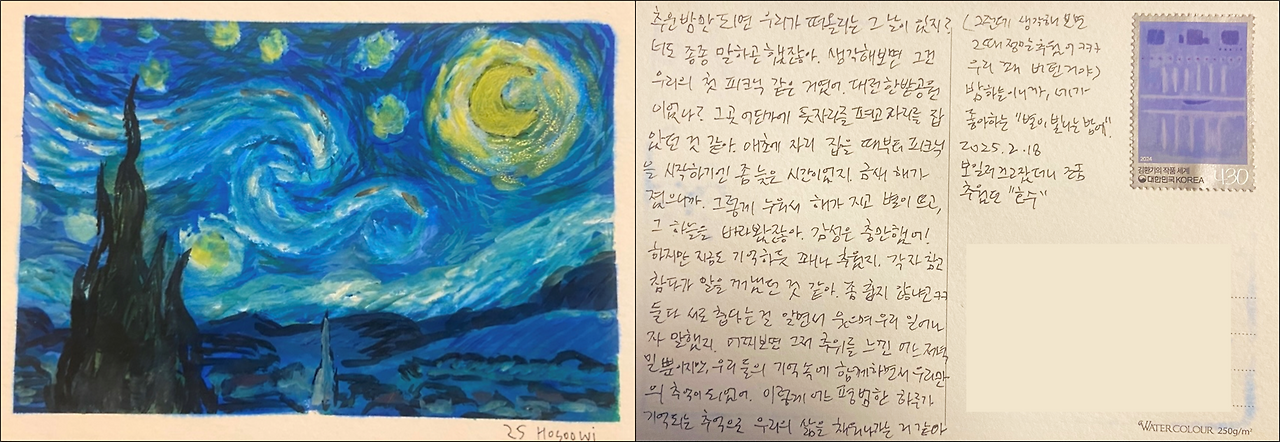 25 Hosoowi
추운 밤만 되면 우리가 떠올리는 그 날이 있지?
너도 종종 말하곤 했잖아. 생각해보면 그건
우리의 첫 피크닉 같은 거였어. 대전한밭공원
이었나? 그곳 어딘가에 돗자리를 펴고 자리를 잡
았던 것 같아. 애초에 자리 잡을 때부터 피크닉
을 시작하기엔 좀 늦은 시간이었지. 금새 해가
졌으니까. 그렇게 누워서 해가 지고 별이 뜨고,
그 하늘을 바라봤잖아. 감성은 충만했어!
하지만 지금도 기억하듯 꽤나 추웠지. 각자 참고
참다가 말을 꺼냈던 것 같아. 좀 춥지 않냐고ㅋㅋ
둘다 서로 춥다는 걸 알면서 웃으며 우리 일어나
자 말했지. 어찌보면 그저 추위를 느낀 어느 저녁
일 뿐이지만, 우리 둘의 기억 속에 함께하면서 우리만
의 추억이 되었어. 이렇게 어느 평범한 하루가
기억되는 추억으로 우리의 삶을 채워나가는 거 같아
(그런데 생각해 보면
그때 정말 추웠어 ㅋㅋㅋ
우리 꽤 버틴거야)
밤하늘이니까, 네가
좋아하는 "별이 빛나는 밤에"
2025. 2. 18
보일러 끄고 잤더니 조금
추웠던 "호수"
2024
김환기의 작품 세계
대한민국 KOREA
430
WATERCOLOUR 250g/m²